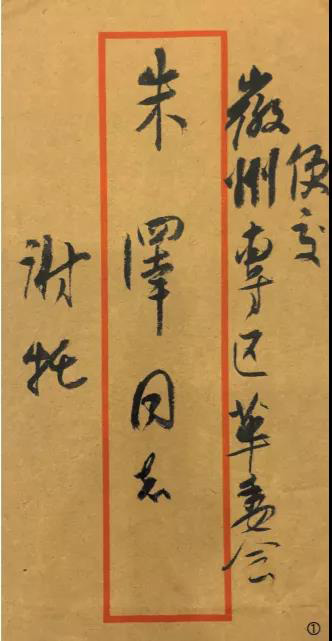 便交
徽州专区革委会
朱泽同志
谢托
①